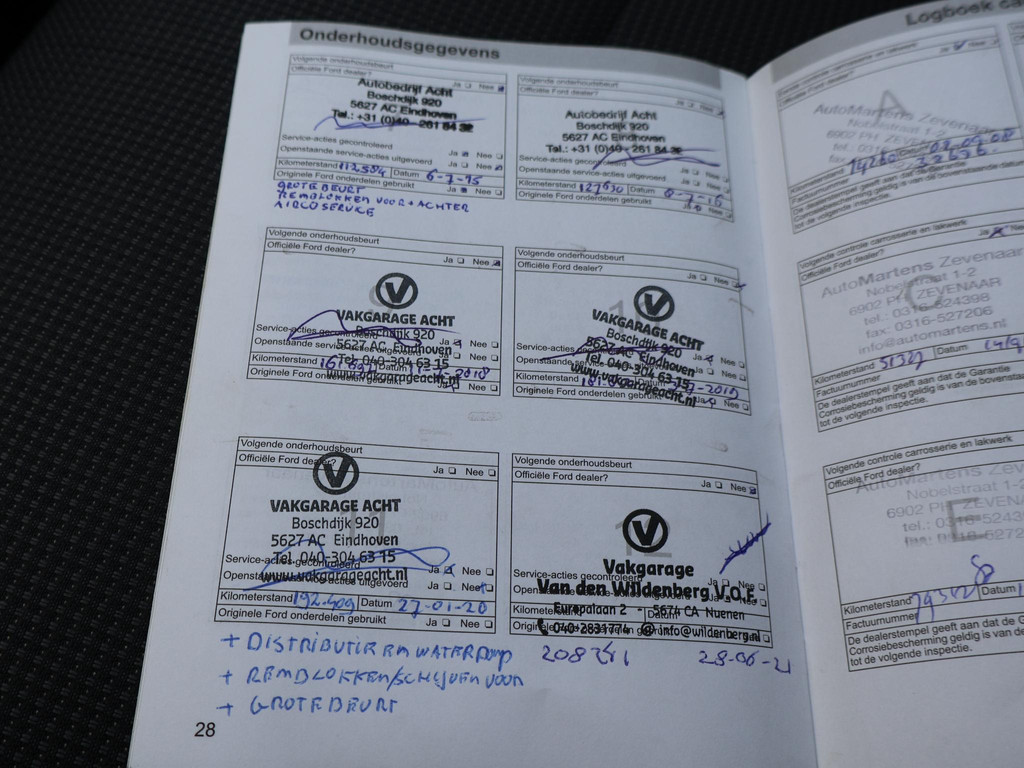 Onderhoudsgegevens
Volgende onderhoudsbeurt
Officiële Ford dealer? Ja Nee
Autobedrijf Acht
Boschdijk 920
5627 AC Eindhoven
Tel.: +31 (0)40 - 261 84 32
Service-acties gecontroleerd Ja Nee
Openstaande service-acties uitgevoerd Ja Nee
Kilometerstand 113.584 Datum 6-7-15
Originele Ford onderdelen gebruikt Ja Nee
GROTE BEURT
REMBLOKKEN VOOR + ACHTER
AIRCO SERVICE
Volgende onderhoudsbeurt
Officiële Ford dealer?
Autobedrijf Acht
Boschdijk 920
5627 AC Eindhoven
Tel.: +31 (0)40 - 261 84 32
Service-acties gecontroleerd Ja Nee
Openstaande service-acties uitgevoerd Ja Nee
Kilometerstand 127630 Datum
Originele Ford onderdelen gebruikt
Volgende onderhoudsbeurt
Officiële Ford dealer? Ja Nee
VAKGARAGE ACHT
Boschdijk 920
Service-acties gecontroleerd
5627 AC Eindhoven
Openstaande service-acties uitgevoerd Ja Nee
Tel. 040-304 63 15
Kilometerstand Datum 2018
www.vakgarageacht.nl
Originele Ford onderdelen gebruikt Ja Nee
Volgende onderhoudsbeurt
Officiële Ford dealer? Ja Nee
VAKGARAGE ACHT
Boschdijk 920
Service-acties gecontroleerd Ja Nee
5627 AC Eindhoven
Openstaande service-acties uitgevoerd Nee
Tel. 040-304 63 15
Kilometerstand Datum 2019
www.vakgarageacht.nl
Originele Ford onderdelen gebruikt Ja Nee
Volgende onderhoudsbeurt
Officiële Ford dealer? Ja Nee
VAKGARAGE ACHT
Boschdijk 920
5627 AC Eindhoven
Tel. 040-304 63 15
Service-acties gecontroleerd Ja Nee
www.vakgarageacht.nl
Openstaande service-acties uitgevoerd Ja Nee
Kilometerstand 192.409 Datum 27-01-20
Originele Ford onderdelen gebruikt Ja Nee
+ DISTRIBUTIE EN WATERPOMP
+ REMBLOKKEN/SCHIJVEN VOOR
+ GROTE BEURT
Volgende onderhoudsbeurt
Officiële Ford dealer? Ja Nee
12
Vakgarage
Service-acties gecontroleerd Ja Nee
Van den Wildenberg V.O.F.
Kilometerstand
Europalaan 2 - 5674 CA Nuenen
040-2831774 @ info@wildenberg.nl
28-06-21
28
Logboek
Volgende controle carrosserie en lakwerk
Officiële Ford dealer? Ja Nee
A
AutoMartens Zevenaar
Nobelstraat 1-2
6902 PH
Kilometerstand Datum
Factuurnummer
De dealerstempel geeft aan dat de Garantie
Corrosiebescherming geldig is van de bovenstaande datum
tot de volgende inspectie.
Volgende controle carrosserie en lakwerk
Officiële Ford dealer? Ja Nee
C
AutoMartens Zevenaar
Nobelstraat 1-2
6902 PH ZEVENAAR
tel.: 0316-524398
fax: 0316-527206
info@automartens.nl
Kilometerstand 51327 Datum
Factuurnummer
De dealerstempel geeft aan dat de Garantie
Corrosiebescherming geldig is van de bovenstaande
tot de volgende inspectie.
Volgende controle carrosserie en lakwerk
Officiële Ford dealer?
E
AutoMartens
Nobelstraat 1-2
6902 PH ZEVENAAR
Kilometerstand Datum
Factuurnummer
De dealerstempel geeft aan dat de
Corrosiebescherming geldig is van de
tot de volgende inspectie.